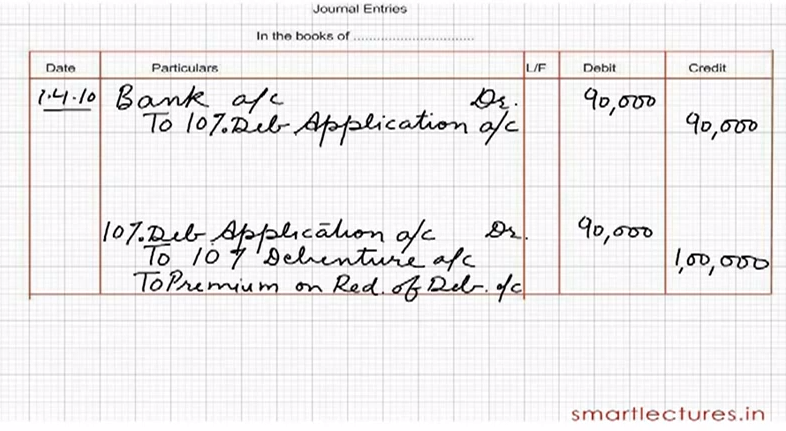 Journal Entries
In the books of ................................
Date Particulars L/F Debit Credit
1.4.10 Bank a/c Dr. 90,000
To 10% Deb Application a/c 90,000
10% Deb Application a/c Dr. 90,000
To 10% Debenture a/c 1,00,000
To Premium on Red. of Deb. a/c
smartlectures.in